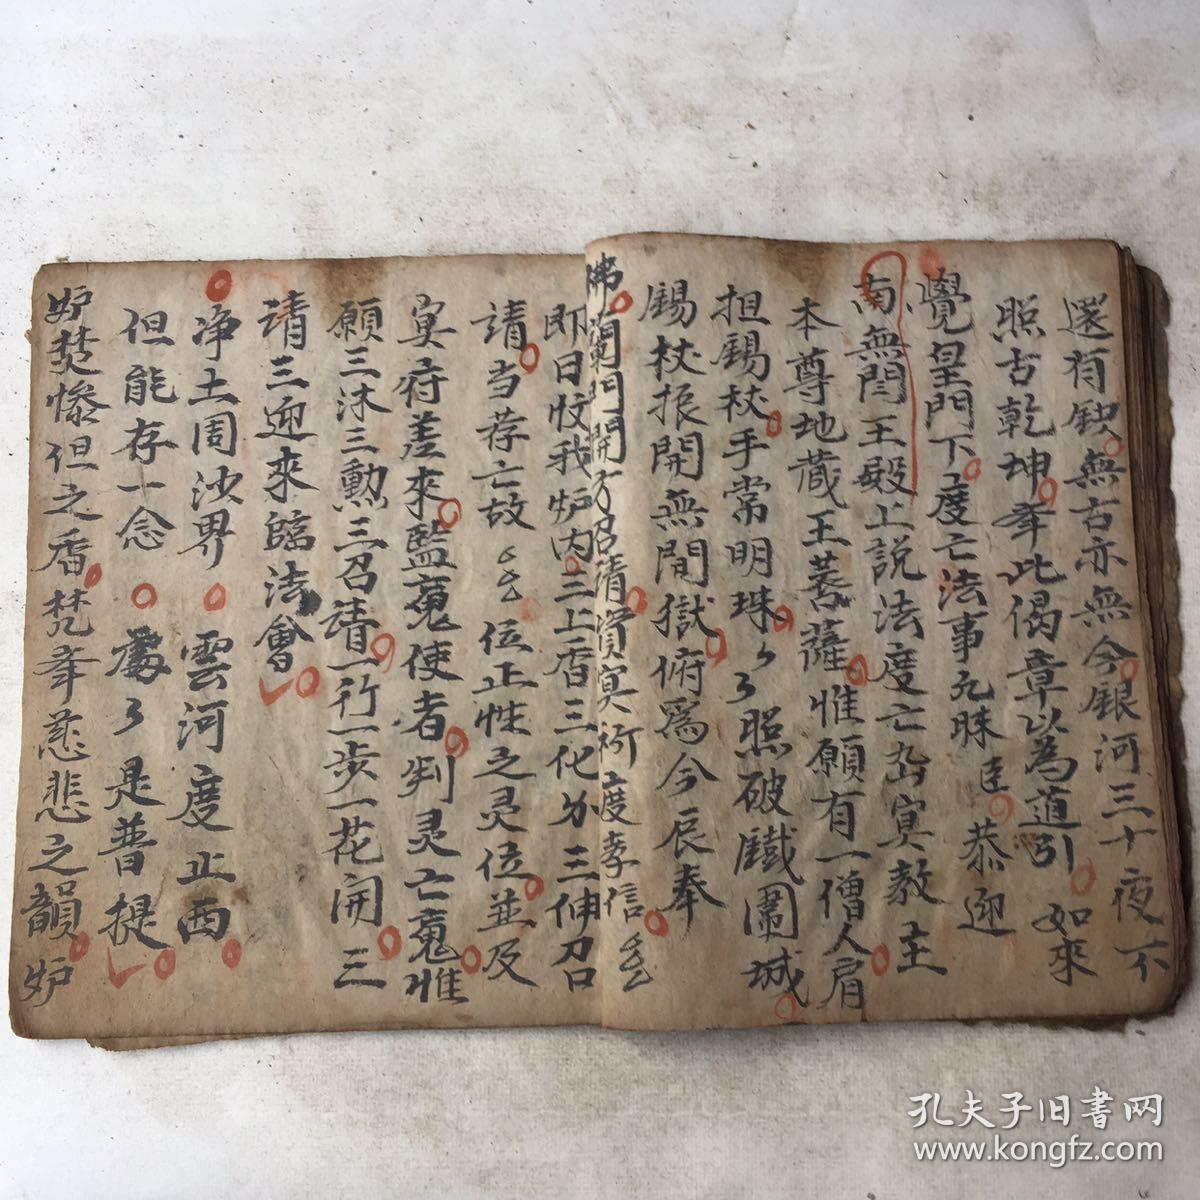 還有缺無古亦無今銀河三十夜不
照古乾坤奉此偈章以為道引 如來
覺皇門下度亡法事九昧臣 恭迎
南無閆王殿上説法度亡出冥教主
本尊地蔵王菩薩惟願有一僧人肩
担錫杖手常明珠々了照破鐵圍城
錫杖振開無間獄俯為今辰奉
佛蘭門開方召請賢冥祈度孝信
即日忟我炉内三上香三化分三伸召
請当荐亡故 位正性之灵位並及
冥府差來監䰟使者判灵亡䰟惟
願三沐三勲三召請一行一步一花開三
請三迎來臨法會
净土周沙界 雲河度止西
但能存一念 處了是普提
炉焚惨但之香焚奉慈悲之韻炉
孔夫子旧书网
www.kongfz.com